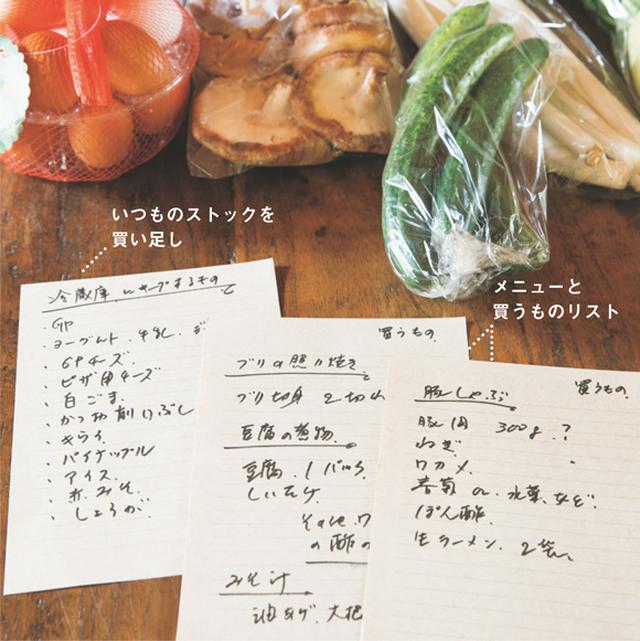 いつものストックを
買い足し
メニューと
買うものリスト
冷蔵庫にキープするもの
・卵
・ヨーグルト・牛乳・
・6Pチーズ
・ピザ用チーズ
・白ごま
・かつお削りぶし
・キウイ
・パイナップル
・アイス
・赤みそ
・しょうが
買うもの
ブリの照り焼き
ブリ切身 2切れ
豆腐の煮物
豆腐 1パック
しいたけ
の酢の
みそ汁
油あげ、大根
買うもの
豚しゃぶ
豚肉 300g.?
ねぎ
ワカメ
春菊 or 水菜など
ぽん酢
生ラーメン 2袋